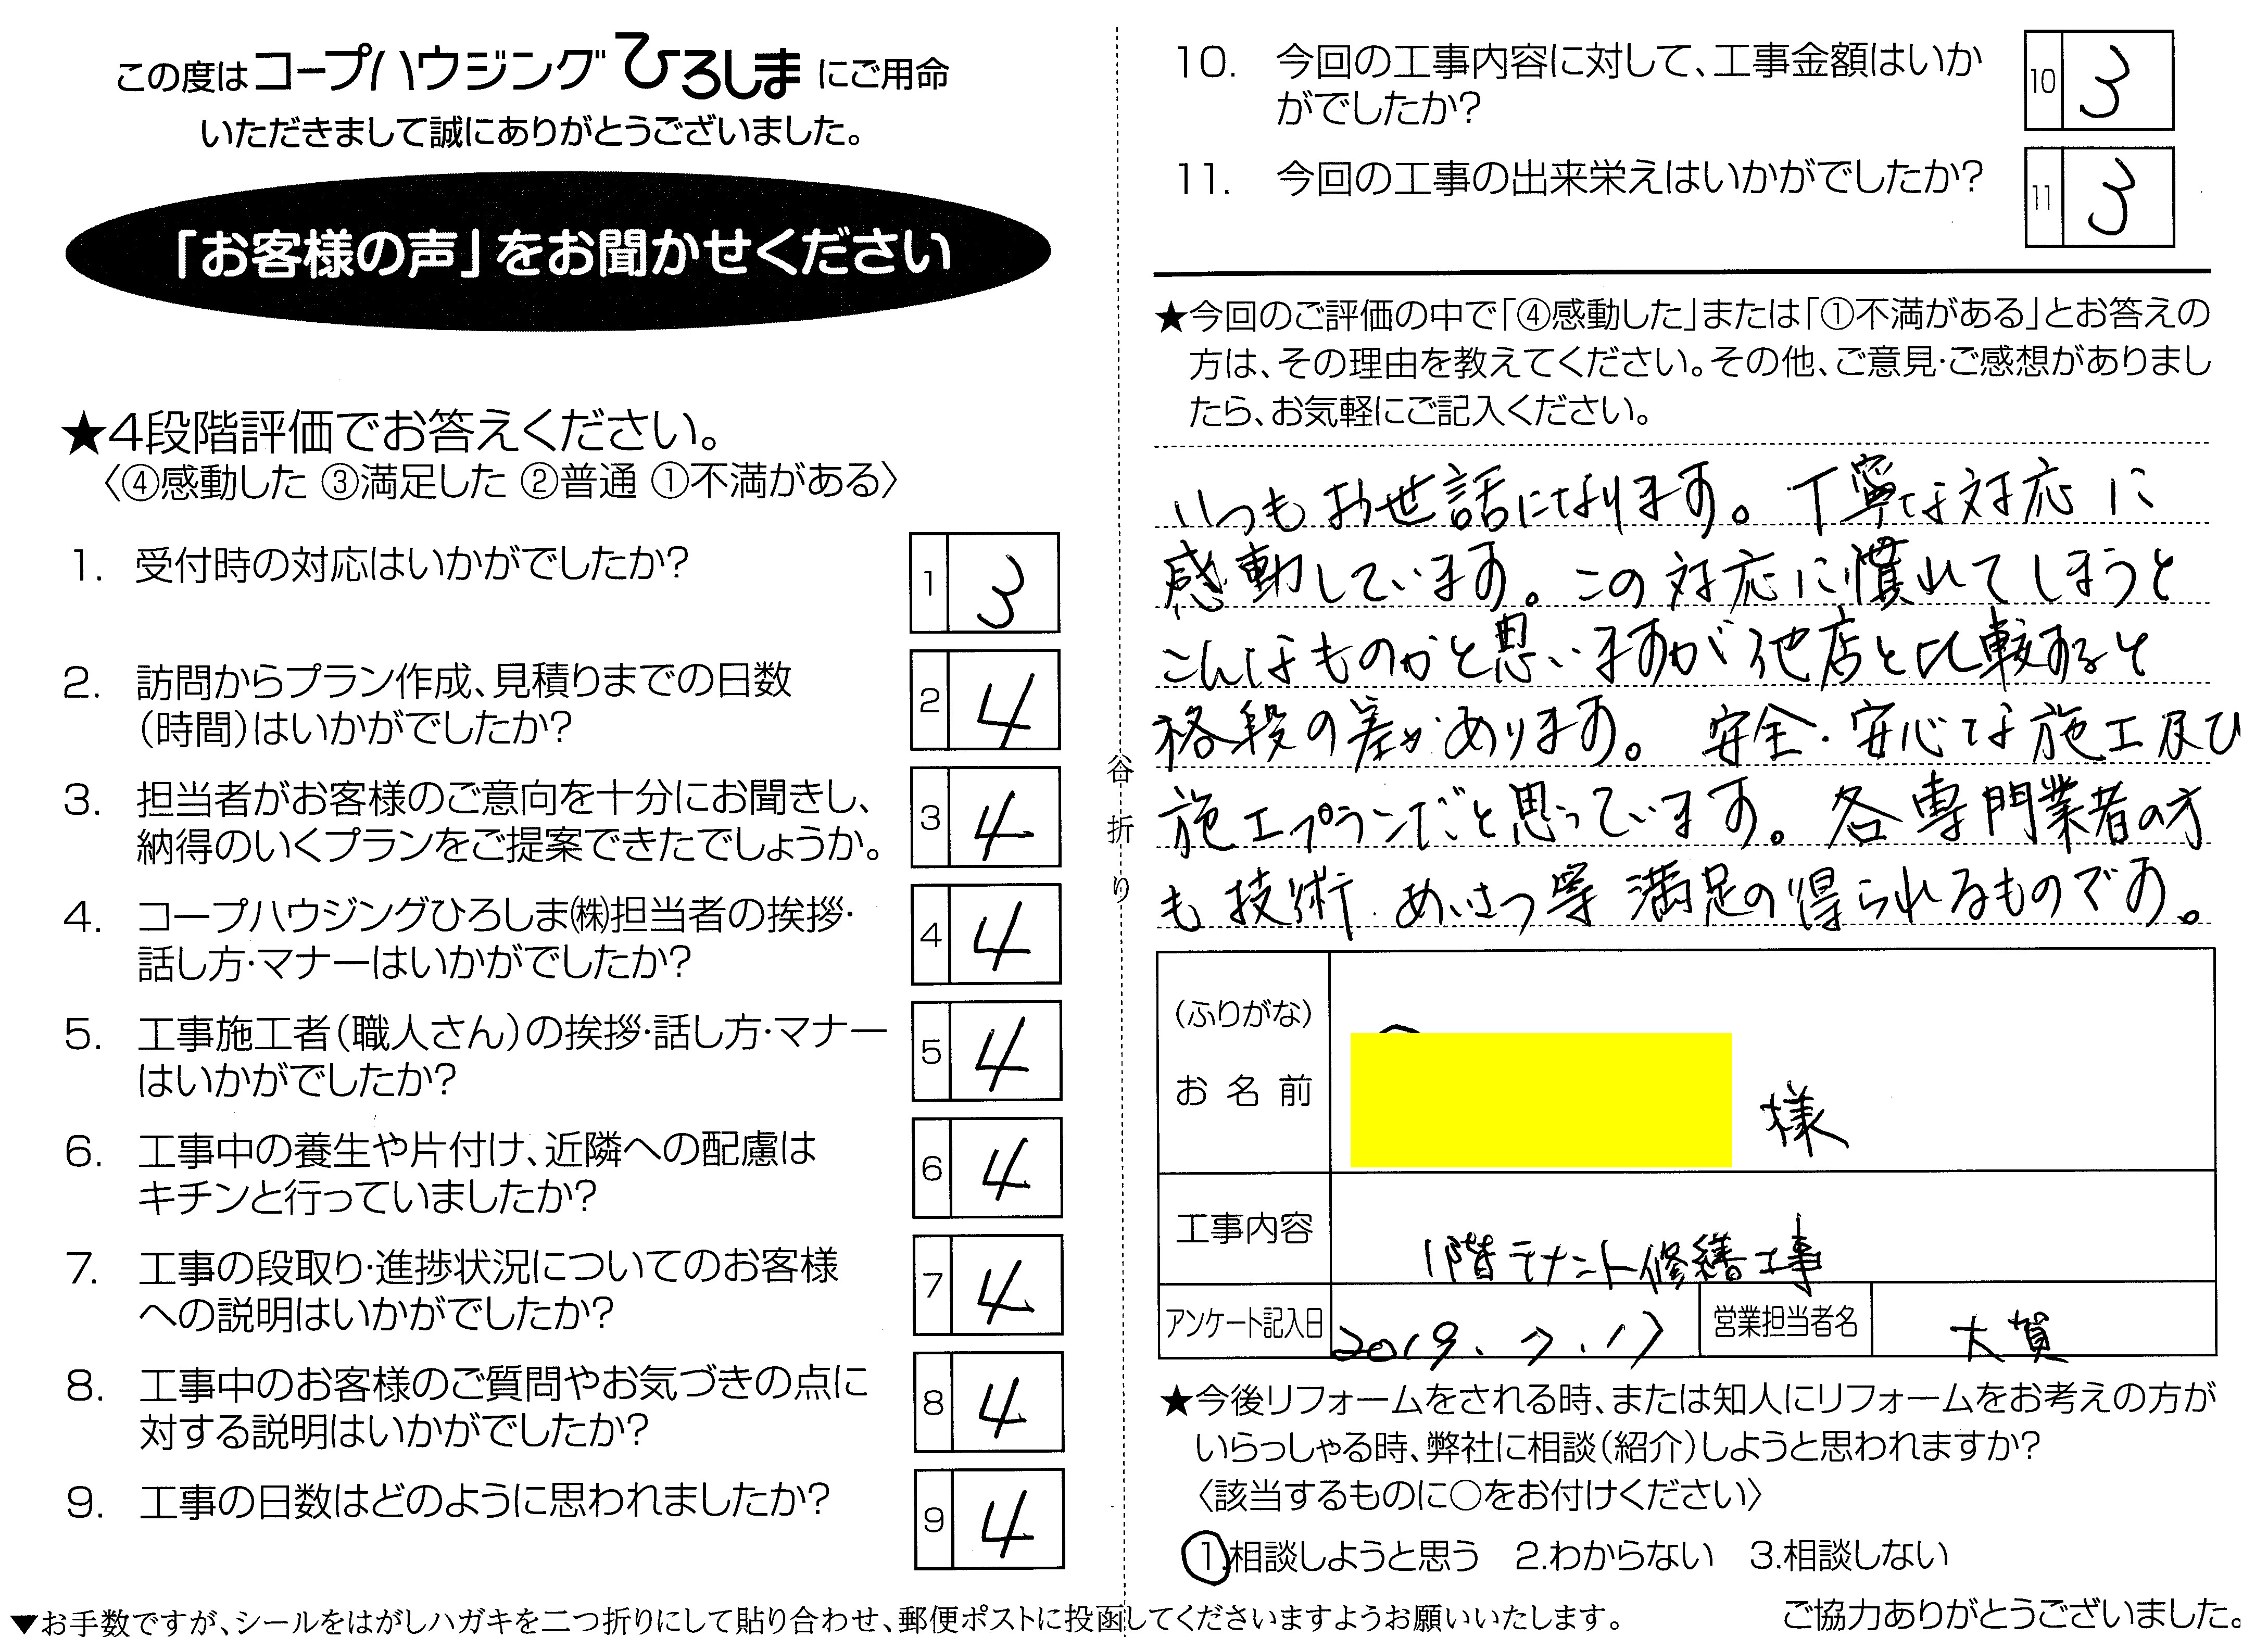 この度はコープハウジングひろしまにご用命
いただきまして誠にありがとうございました。
「お客様の声」をお聞かせください
★4段階評価でお答えください。
〈④感動した ③満足した ②普通 ①不満がある〉
1. 受付時の対応はいかがでしたか?
1 3
2. 訪問からプラン作成、見積りまでの日数
（時間）はいかがでしたか?
2 4
3. 担当者がお客様のご意向を十分にお聞きし、
納得のいくプランをご提案できたでしょうか。
3 4
4. コープハウジングひろしま㈱担当者の挨拶・
話し方・マナーはいかがでしたか?
4 4
5. 工事施工者（職人さん）の挨拶・話し方・マナー
はいかがでしたか?
5 4
6. 工事中の養生や片付け、近隣への配慮は
キチンと行っていましたか?
6 4
7. 工事の段取り・進捗状況についてのお客様
への説明はいかがでしたか?
7 4
8. 工事中のお客様のご質問やお気づきの点に
対する説明はいかがでしたか?
8 4
9. 工事の日数はどのように思われましたか?
9 4
谷折り
10. 今回の工事内容に対して、工事金額はいか
がでしたか?
10 3
11. 今回の工事の出来栄えはいかがでしたか?
11 3
★今回のご評価の中で「④感動した」または「①不満がある」とお答えの
方は、その理由を教えてください。その他、ご意見・ご感想がありまし
たら、お気軽にご記入ください。
いつもお世話になります。丁寧な対応に
感動しています。この対応に慣れてしまうと
こんなものかと思いますが他店と比較すると
格段の差があります。安全・安心な施工及び
施工プランだと思っています。各専門業者の方
も技術・あいさつ等満足の得られるものです。
（ふりがな）
お名前
様
工事内容
1階テナント修繕工事
アンケート記入日 2019.7.17 営業担当者名 大賀
★今後リフォームをされる時、または知人にリフォームをお考えの方が
いらっしゃる時、弊社に相談（紹介）しようと思われますか?
〈該当するものに○をお付けください〉
1.相談しようと思う 2.わからない 3.相談しない
▼お手数ですが、シールをはがしハガキを二つ折りにして貼り合わせ、郵便ポストに投函してくださいますようお願いいたします。
ご協力ありがとうございました。